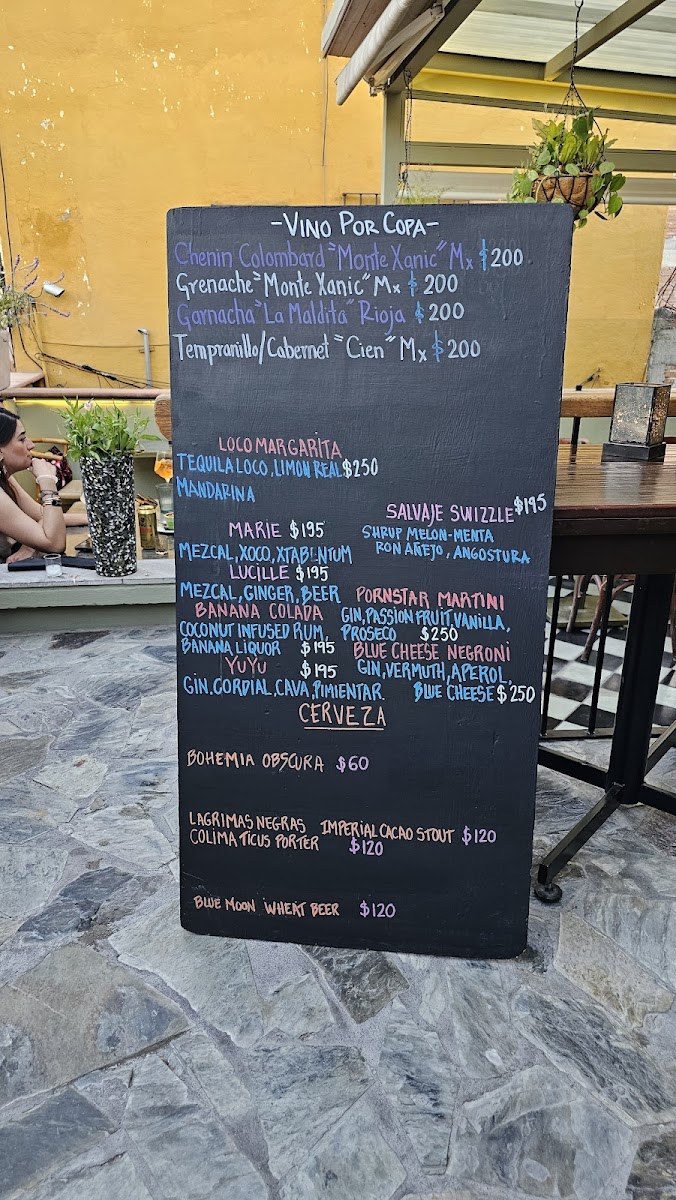 -VINO POR COPA-
Chenin Colombard "Monte Xanic" Mx $200
Grenache "Monte Xanic" Mx $200
Garnacha "La Maldita" Rioja $200
Tempranillo/Cabernet "Cien" Mx $200
LOCO MARGARITA
TEQUILA LOCO, LIMON REAL $250
MANDARINA
SALVAJE SWIZZLE $195
SHRUP MELON-MENTA
RON AÑEJO, ANGOSTURA
MARIE $195
MEZCAL, XOCO, XTABENTUM
LUCILLE $195
MEZCAL, GINGER, BEER
BANANA COLADA
COCONUT INFUSED RUM,
BANANA LIQUOR $195
YUYU $195
GIN, CORDIAL, CAVA, PIMIENTAR
PORNSTAR MARTINI
GIN, PASSION FRUIT, VANILLA,
PROSECO $250
BLUE CHEESE NEGRONI
GIN, VERMUTH, APEROL,
BLUE CHEESE $250
CERVEZA
BOHEMIA OBSCURA $60
LAGRIMAS NEGRAS IMPERIAL CACAO STOUT $120
COLIMA TICUS PORTER $120
BLUE MOON WHEAT BEER $120